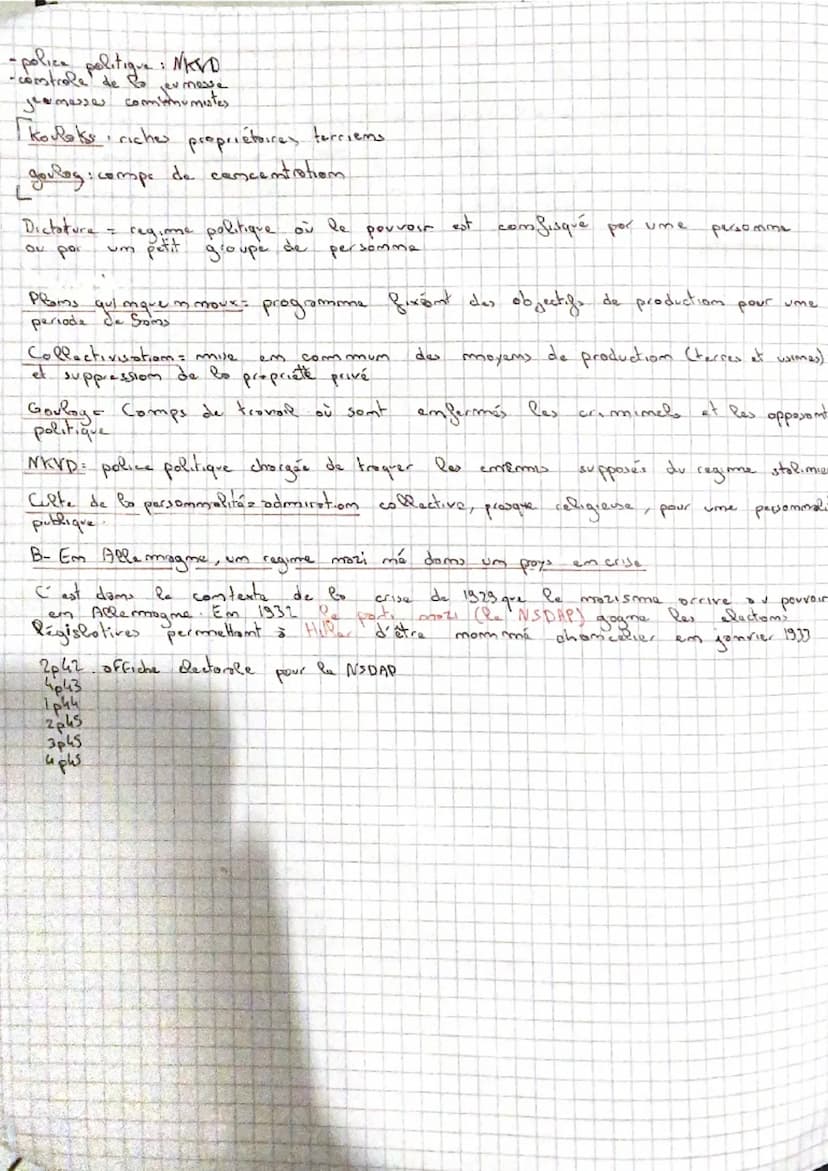 - police politique : NKVD
- controle de la jeunesse
jeunesses communistes
koulaks : riches propriétaires terriens
goulag : camps de concentration
Dictature = regime politique où le pouvoir est confisqué par une personne
ou par un petit groupe de personne
Plans quinquennaux = programme fixant des objectifs de production pour une
periode de 5ans
Collectivisation = mise en commun des moyens de production (terres et usines)
et suppression de la propriété privé
Goulag = Camps de travail où sont enfermés les criminels et les opposant
politique
NKVD = police politique chargée de traquer les ennemis supposés du regime stalinie
Culte de la personnalité = admiration collective, presque religieuse, pour une personnali
publique.
B- En Allemagne, un regime nazi né dans un pays en crise
C'est dans le contexte de la crise de 1929 que le nazisme arrive au pouvoir
en Allemagne. En 1932 le parti nazi (le NSDAP) gagne les elections
législatives permettant à Hitler d'être nommé chancelier en janvier 1933
2p42 . affiche électorale pour la NSDAP
4p43
1p44
2p45
3p45
4p45